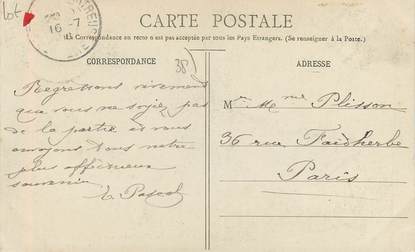 Lot
CARTE POSTALE
La Correspondance au recto n'est pas acceptée par tous les Pays Etrangers. (Se renseigner à la Poste.)
CORRESPONDANCE
38
ADRESSE
16 -7
Regrettons vivement
que vous ne soyez pas
de la partie et vous
envoyons tous notre
plus affectueux
souvenir
Pascal
Mr Mme Plisson
36 rue Faidherbe
Paris